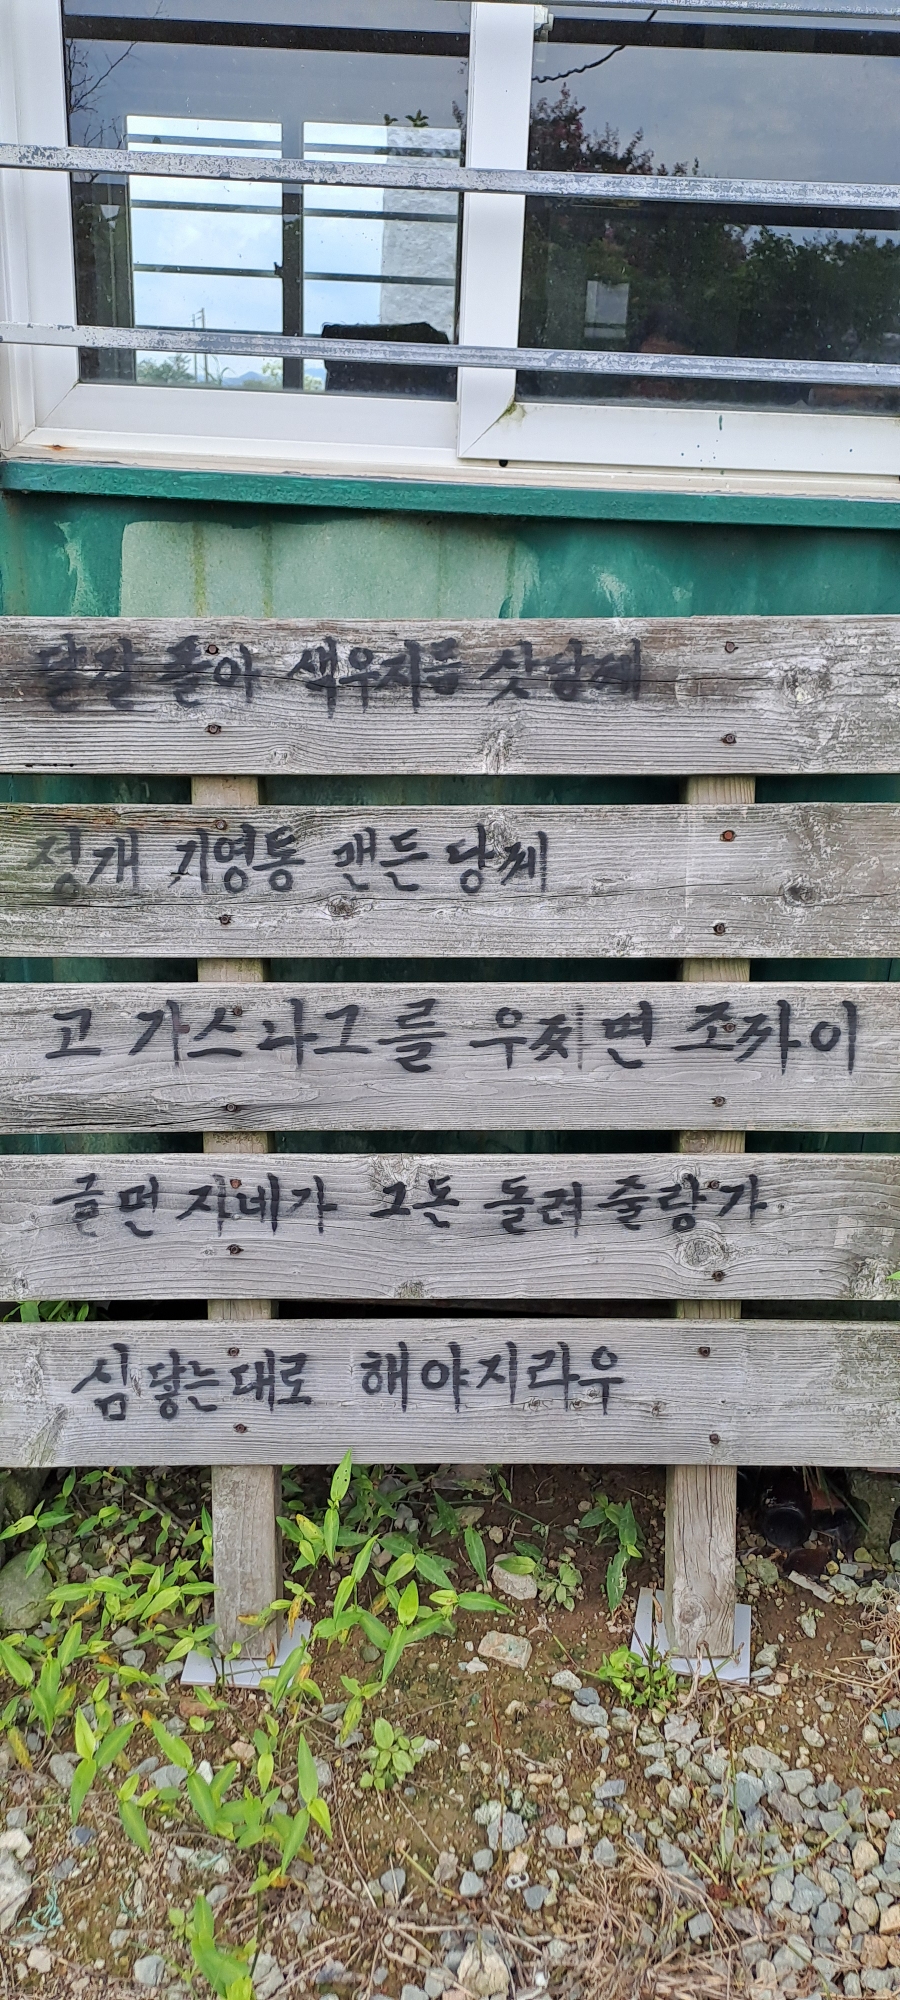 달갈 돌아 색우지등 삿당께
정개 기영통 맨든 당께
고 가스나그를 우찌면 조까이
글먼 자네가 그돈 돌려 줄랑가
심 닿는대로 해야지라우